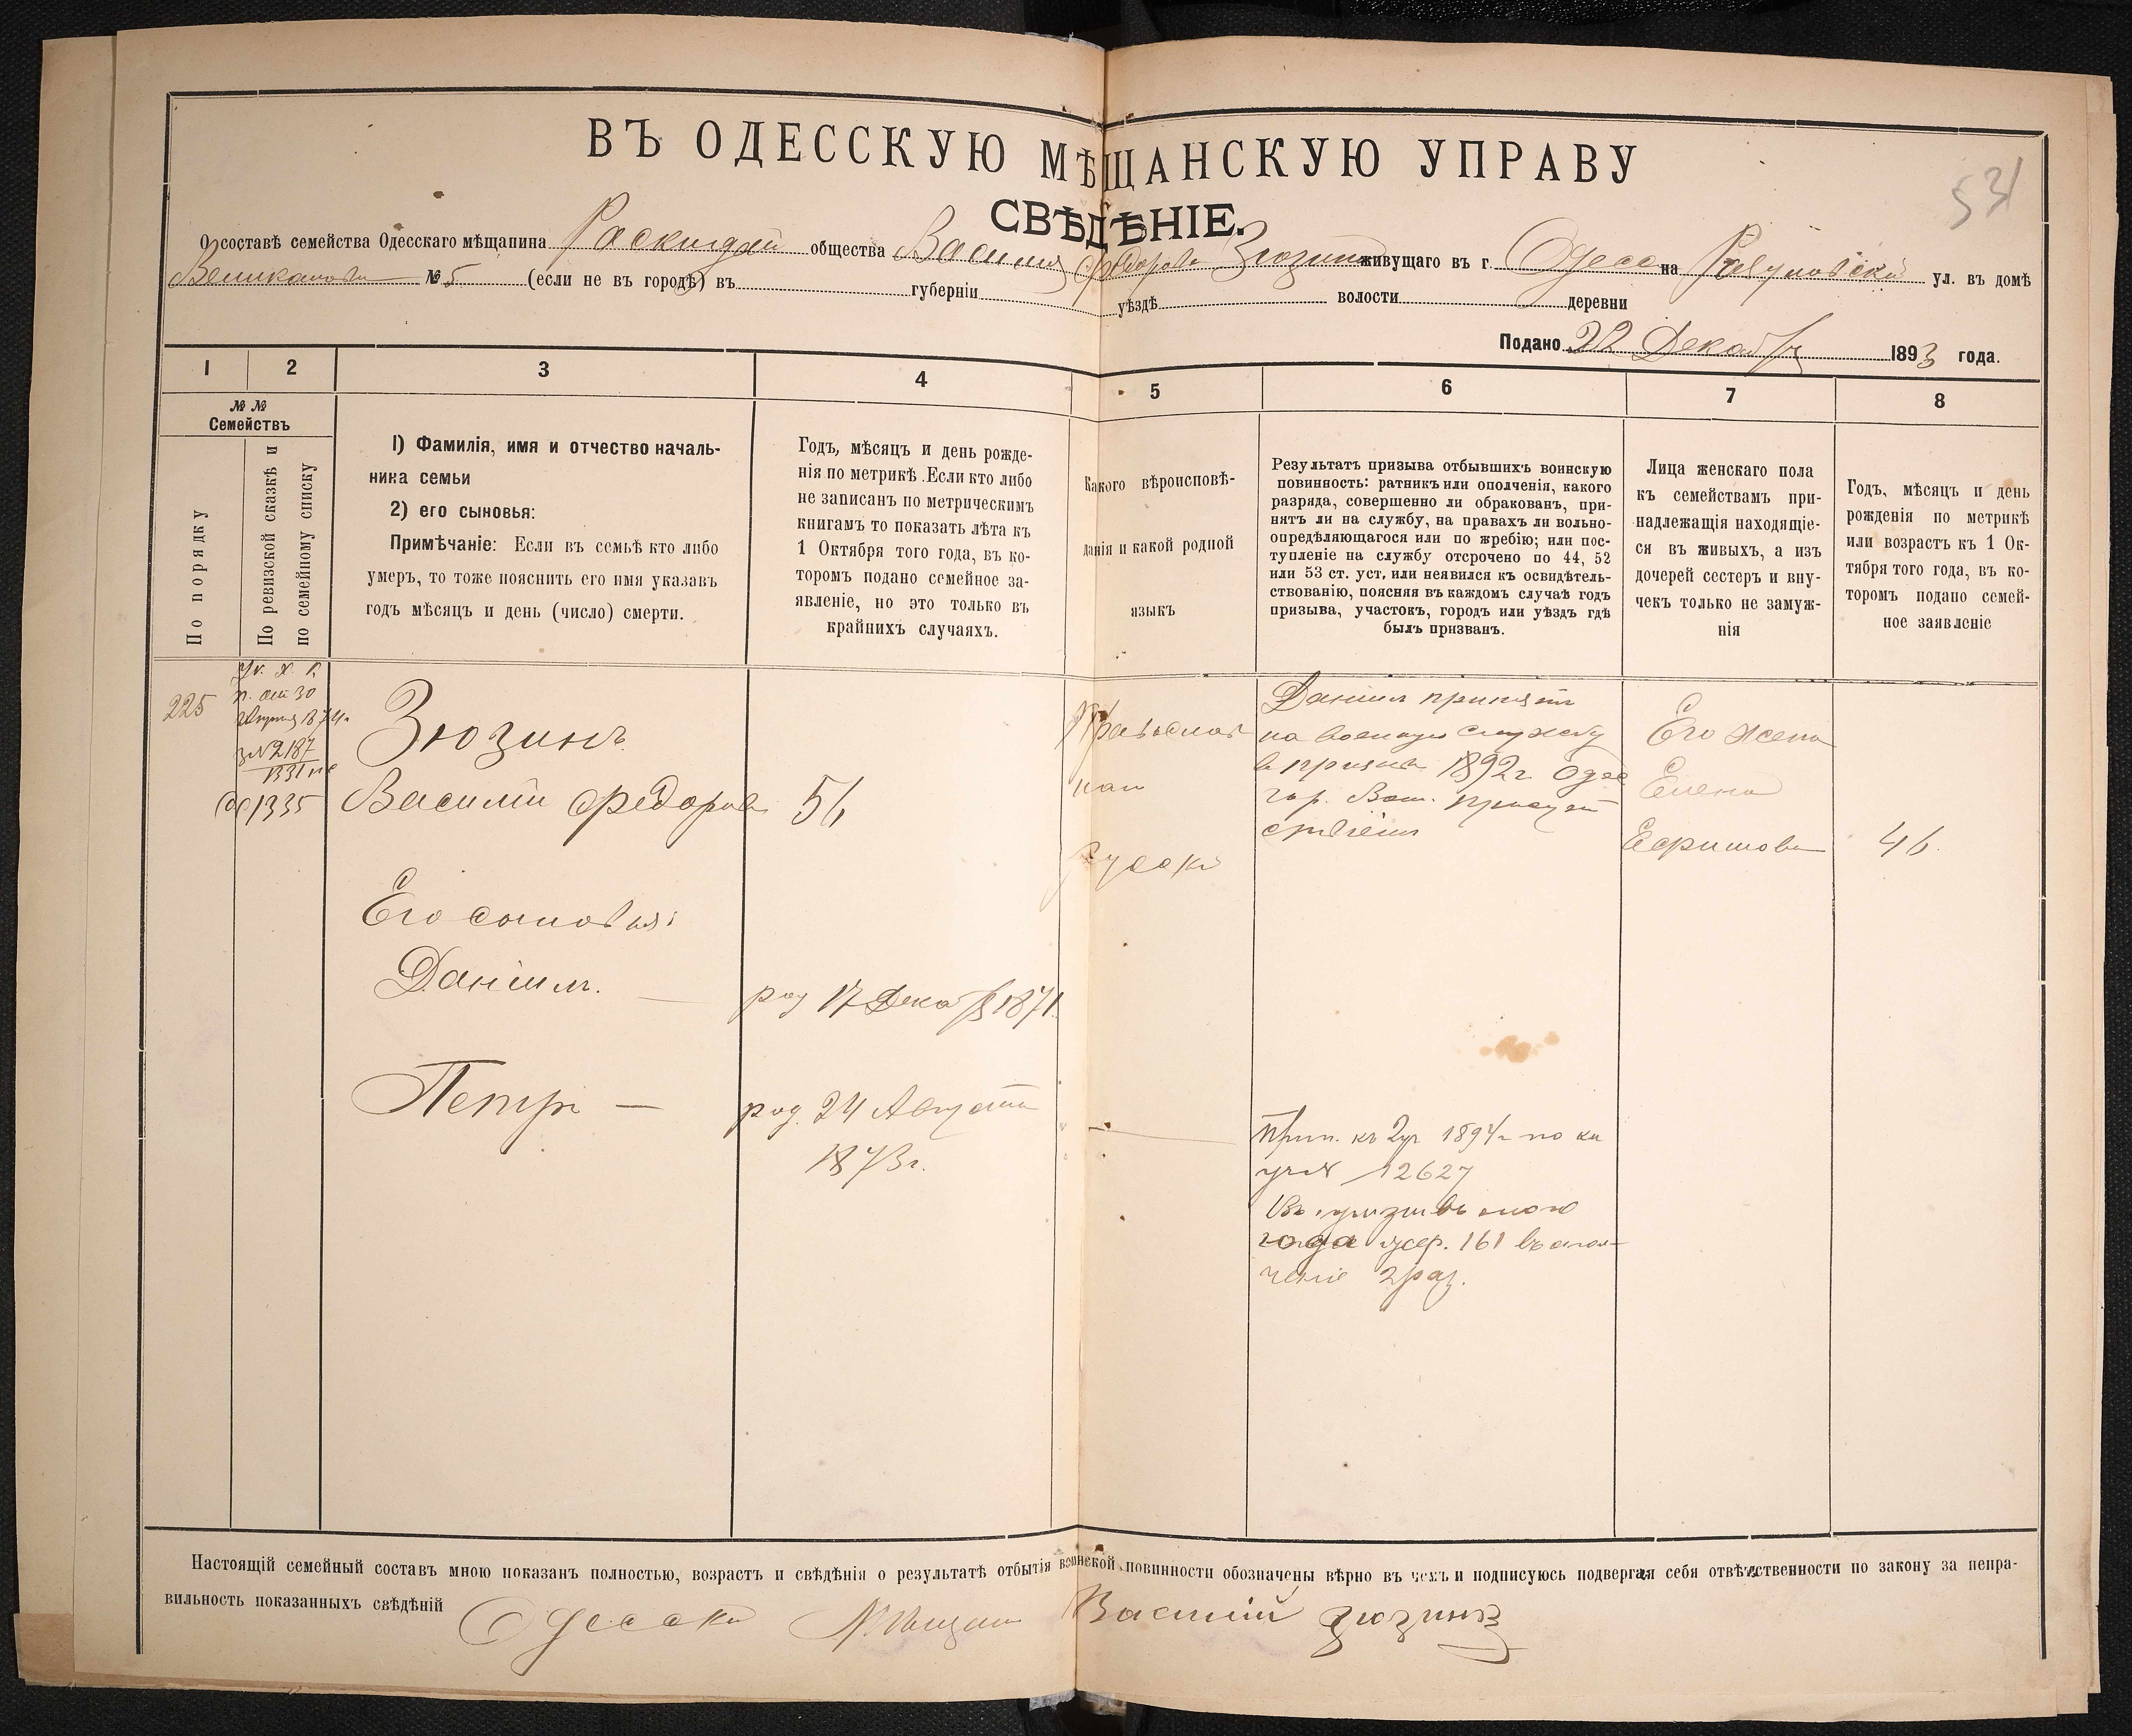 ВЪ ОДЕССКУЮ МѢЩАНСКУЮ УПРАВУ
531
СВѢДѢНІЕ.
О составѣ семейства Одесскаго мѣщанина общества Василія Ѳедорова Зюзина живущаго въ г. Одесс на ул. въ домѣ
Великанова № 5 (если не въ городѣ) въ губерніи уѣздѣ волости деревни
Подано 22 Декабр 1893 года.
1 2 3 4 5 6 7 8
№ №
Семействъ
По порядку
По ревизской сказкѣ и
по семейному списку
1) Фамилія, имя и отчество началь-
ника семьи
2) его сыновья:
Примѣчаніе: Если въ семьѣ кто либо
умеръ, то тоже пояснить его имя указавъ
годъ мѣсяцъ и день (число) смерти.
Годъ, мѣсяцъ и день рожде-
нія по метрикѣ. Если кто либо
не записанъ по метрическимъ
книгамъ то показать лѣта къ
1 Октября того года, въ ко-
торомъ подано семейное за-
явленіе, но это только въ
крайнихъ случаяхъ.
Какого вѣроисповѣ-
данія и какой родной
языкъ
Результатъ призыва отбывшихъ воинскую
повинность: ратникъ или ополченія, какого
разряда, совершенно ли обракованъ, при-
нятъ ли на службу, на правахъ ли вольно-
опредѣляющагося или по жребію; или пос-
тупленіе на службу отсрочено по 44, 52
или 53 ст. уст. или неявился къ освидѣтель-
ствованію, поясняя въ каждомъ случаѣ годъ
призыва, участокъ, городъ или уѣздъ гдѣ
былъ призванъ.
Лица женскаго пола
къ семействамъ при-
надлежащія находящіе-
ся въ живыхъ, а изъ
дочерей сестеръ и вну-
чекъ только не замуж-
нія
Годъ, мѣсяцъ и день
рожденія по метрикѣ
или возрастъ къ 1 Ок-
тября того года, въ ко-
торомъ подано семей-
ное заявленіе
225
п. от 30
№ 2187
1331
1335
Зюзинъ
Василій Ѳедоров 56
Его сыновья:
Даніилъ. — род 17 Декабр 1871
Петръ — род. 24 Августа
1873 г.
Православ
ная
русскій
Даніил принят
на военную службу
в призыв 1892 г. Одес
гор. Воин. присут
ствіем
Его жена
Елена
Ефимова 46.
Прип. къ 2 уч 1894 г по
№ 12627
Въ призывъ оного
года жер. 161 въ опол-
ченіе 2 раз.
Настоящій семейный составъ мною показанъ полностью, возрастъ и свѣдѣнія о результатѣ отбытія воинской повинности обозначены вѣрно въ чемъ и подписуюсь подвергая себя отвѣтственности по закону за непра-
вильность показанныхъ свѣдѣній Одесскій Мѣщан Василій Зюзинъ